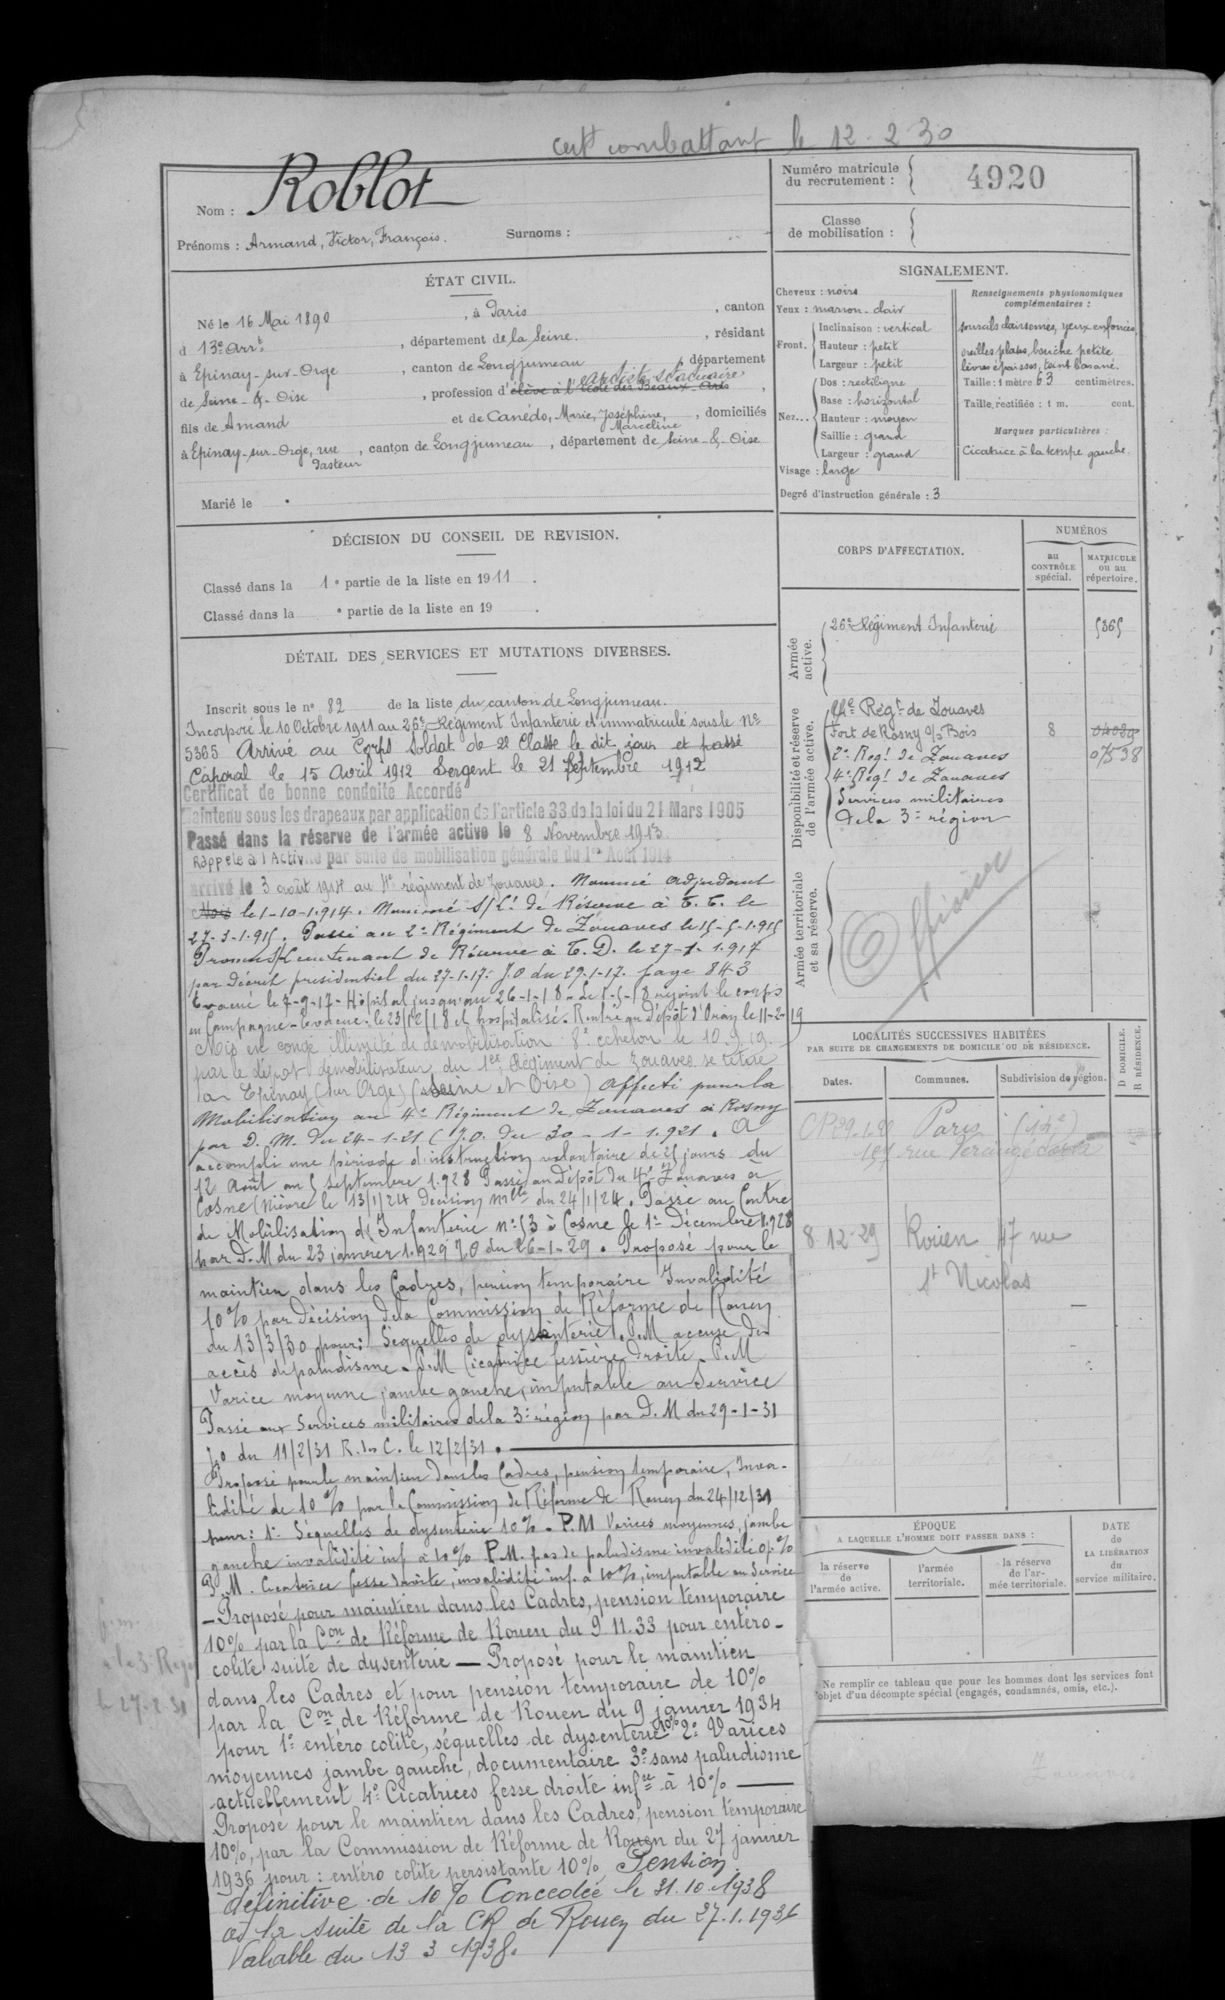 cert combattant le 12-2-30
Nom : Roblot
Prénoms : Armand, Victor, François. Surnoms :
Numéro matricule du recrutement : 4920
Classe de mobilisation :
ÉTAT CIVIL.
Né le 16 Mai 1890, à Paris, canton
d 13e Arrt, département de la Seine., résidant
à Epinay-sur-Orge, canton de Longjumeau, département
artiste statuaire
de Seine-&-Oise, profession d'élève à l'école des Beaux Arts,
fils de Amand et de Canédo, Marie, Joséphine, Marceline, domiciliés
à Epinay-sur-Orge, rue Pasteur, canton de Longjumeau, département de Seine-&-Oise
Marié le
SIGNALEMENT.
Cheveux : noirs
Yeux : marron-clair
Front. Inclinaison : vertical
Hauteur : petit
Largeur : petit
Nez... Dos : rectiligne
Base : horizontal
Hauteur : moyen
Saillie : grand
Largeur : grand
Visage : large
Renseignements physionomiques complémentaires :
sourcils clairsemés, yeux enfoncés,
oreilles plates, bouche petite
lèvres épaisses, teint basané.
Taille : 1 mètre 63 centimètres.
Taille rectifiée : 1 m. cent.
Marques particulières :
Cicatrice à la tempe gauche.
Degré d'instruction générale : 3
DÉCISION DU CONSEIL DE REVISION.
Classé dans la 1e partie de la liste en 1911.
Classé dans la e partie de la liste en 19 .
DÉTAIL DES SERVICES ET MUTATIONS DIVERSES.
Inscrit sous le n° 82 de la liste du canton de Longjumeau.
Incorporé le 10 Octobre 1911 au 26e Régiment Infanterie et immatriculé sous le No
5365 Arrivé au Corps Soldat de 2e Classe le dit jour et passé
Caporal le 15 Avril 1912 Sergent le 21 Septembre 1912
Certificat de bonne conduite Accordé
Maintenu sous les drapeaux par application de l'article 33 de la loi du 21 Mars 1905
Passé dans la réserve de l'armée active le 8 Novembre 1913.
Rappelé à l'Activité par suite de mobilisation générale du 1er Août 1914
arrivé le 3 août 1914 au 4e régiment de zouaves. Nommé adjudant
le 1-10-1914. Nommé S/Lt de Réserve à T.T. le
27-3-1915. Passé au 2e Régiment de Zouaves le 15-5-1915
Promu Lieutenant de Réserve à T.D. le 27-1-1917
par Décret presidentiel du 27-1-17. J.O du 29-1-17. page 843
Evacué le 7-9-17- Hôpital jusqu'au 26-1-18. Le 1-5-18 rejoint le corps
en Campagne- Evacué. le 23/12/18 et hospitalisé. Rentré au dépôt d'Oran le 11-2-19
Mis en congé illimité de démobilisation 8e echelon le 10.9.19.
par le dépôt démobilisateur du 1er Régiment de zouaves se retire
à Epinay (sur Orge) (Seine et Oise) Affecté pour la
Mobilisation au 4e Régiment de Zouaves à Rosny
par D.M. du 24-1-21 (J.O. du 30-1-1921. A
accompli une période d'instruction volontaire de 25 jours du
12 Août au 5 septembre 1928 Passé au Dépôt du 4e Zouaves à
Cosne (Nièvre le 13/1/24 Décision mlle du 24/1/24. Passé au Centre
de Mobilisation d'Infanterie n° 53 à Cosne le 1er Décembre 1928
par D.M du 23 janvier 1929 J.O du 26-1-29. Proposé pour le
maintien dans les Cadres, pension temporaire Invalidité
10% par Décision de la Commission de Réforme de Rouen
du 13/3/30 pour : Séquelles de dysenterie. P.M accuse des
accès de paludisme. P.M Cicatrice fessière droite. P.M
Varice moyenne jambe gauche, imputable au Service
Passé aux Services militaires de la 3e région par D.M du 29-1-31
J.O du 11/2/31 R. des C. le 12/2/31.
Proposé pour le maintien dans les Cadres, pension temporaire, Inva-
lidité de 10% par la Commission de Réforme de Rouen du 24/12/31
pour : 1° Séquelles de dysenterie 10%. P.M Varices moyennes, jambe
gauche invalidité inf. à 10% P.M. pas de paludisme invalidité 0%
P.M. Cicatrice fesse droite, invalidité inf. à 10%, imputable au Service
— Proposé pour maintien dans les Cadres, pension temporaire
10% par la Con de Réforme de Rouen du 9.11.33 pour entéro-
colite suite de dysenterie — Proposé pour le maintien
dans les Cadres et pour pension temporaire de 10%
par la Con de Réforme de Rouen du 9 janvier 1934
pour 1° entéro colite, séquelles de dysenterie 10% 2° Varices
moyennes jambe gauche, documentaire 3° sans paludisme
actuellement 4° Cicatrices fesse droite infre à 10% —
Proposé pour le maintien dans les Cadres, pension temporaire
10%, par la Commission de Réforme de Rouen du 27 janvier
1936 pour : entéro colite persistante 10% Pension
définitive de 10% Concédée le 31.10.1938
à la suite de la CR de Rouen du 27.1.1936
Valable du 13 3 1938.
CORPS D'AFFECTATION.
NUMÉROS
au CONTRÔLE spécial.
MATRICULE ou au répertoire.
Armée active.
26e Régiment Infanterie 5365
Disponibilité et réserve de l'armée active.
4e Régt de Zouaves
Fort de Rosny s/s Bois 8
2e Regt de Zouaves 07538
4e Regt de Zouaves
Services militaires
de la 3e région
Armée territoriale et sa réserve.
Officier
LOCALITÉS SUCCESSIVES HABITÉES
PAR SUITE DE CHANGEMENTS DE DOMICILE OU DE RÉSIDENCE.
Dates. Communes. Subdivision de région. D DOMICILE. R RÉSIDENCE.
Paris (14e)
197 rue Vercingétorix
8-12-29 Rouen 47 rue
St Nicolas
ÉPOQUE
A LAQUELLE L'HOMME DOIT PASSER DANS :
la réserve de l'armée active.
l'armée territoriale.
la réserve de l'armée territoriale.
DATE de LA LIBÉRATION du service militaire.
Ne remplir ce tableau que pour les hommes dont les services font
l'objet d'un décompte spécial (engagés, condamnés, omis, etc.).
le 27-2-31